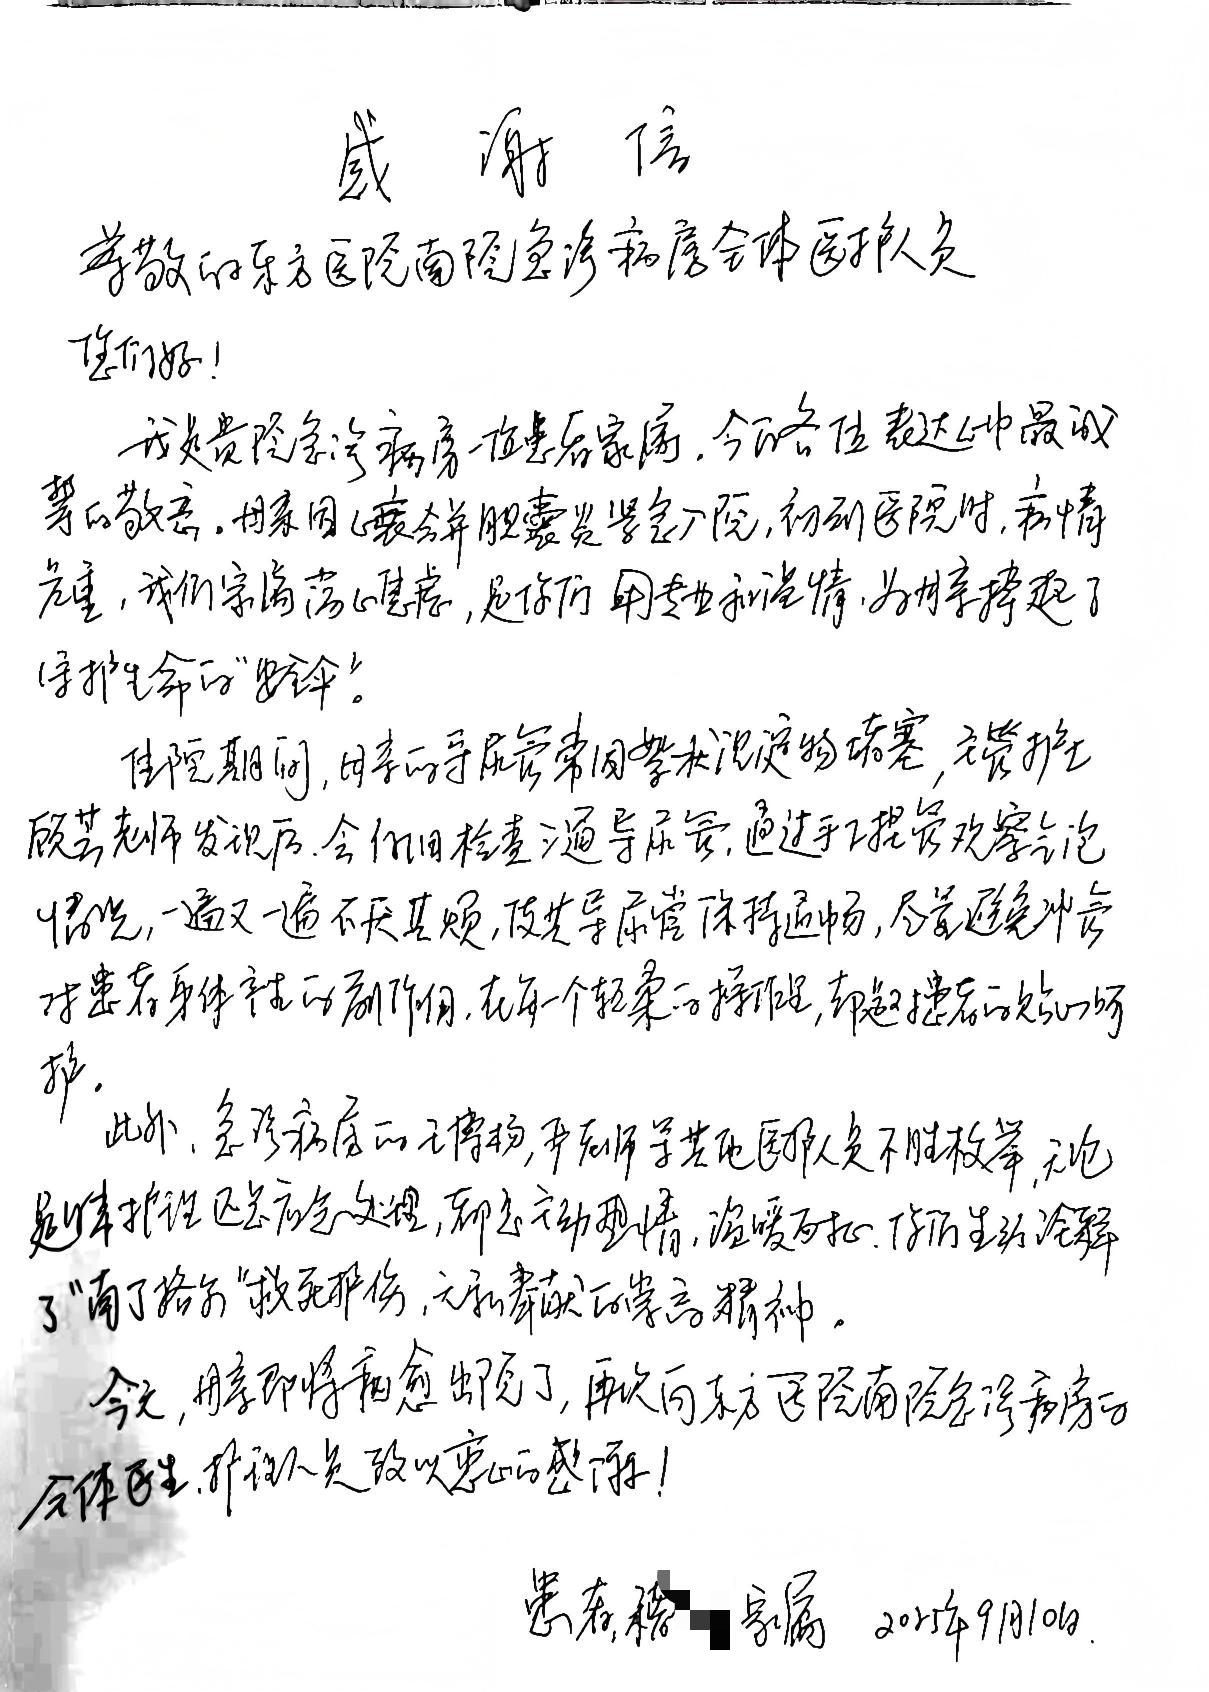 感谢信
尊敬的东方医院南院急诊病房全体医护人员
您们好！
我是贵院急诊病房一位患者家属。今向各位表达心中最诚
挚的敬意。母亲因心衰合并胆囊炎紧急入院，初到医院时，病情
危重，我们家属满心焦虑，是你们用专业和温情，为母亲撑起了
守护生命的“安全伞”。
住院期间，母亲的导尿管常因絮状沉淀物堵塞，主管护士
顾芸老师发现后，会仔细检查疏通导尿管，通过手工捏管观察气泡
情况，一遍又一遍不厌其烦，使其导尿管保持通畅，尽量避免冲管
对患者身体产生的副作用，在每一个轻柔的操作里，都是对患者的贴心呵
护。
此外，急诊病房的王博杨，尹老师等其他医护人员不胜枚举，无论
是日常护理还是应急处理，都是主动热情，温暖可亲。你们生动诠释
了“南丁格尔”救死护伤，无私奉献的崇高精神。
今天，母亲即将病愈出院了，再次向东方医院南院急诊病房的
全体医生、护理人员致以衷心的感谢！
患者 家属 2025年9月10日.